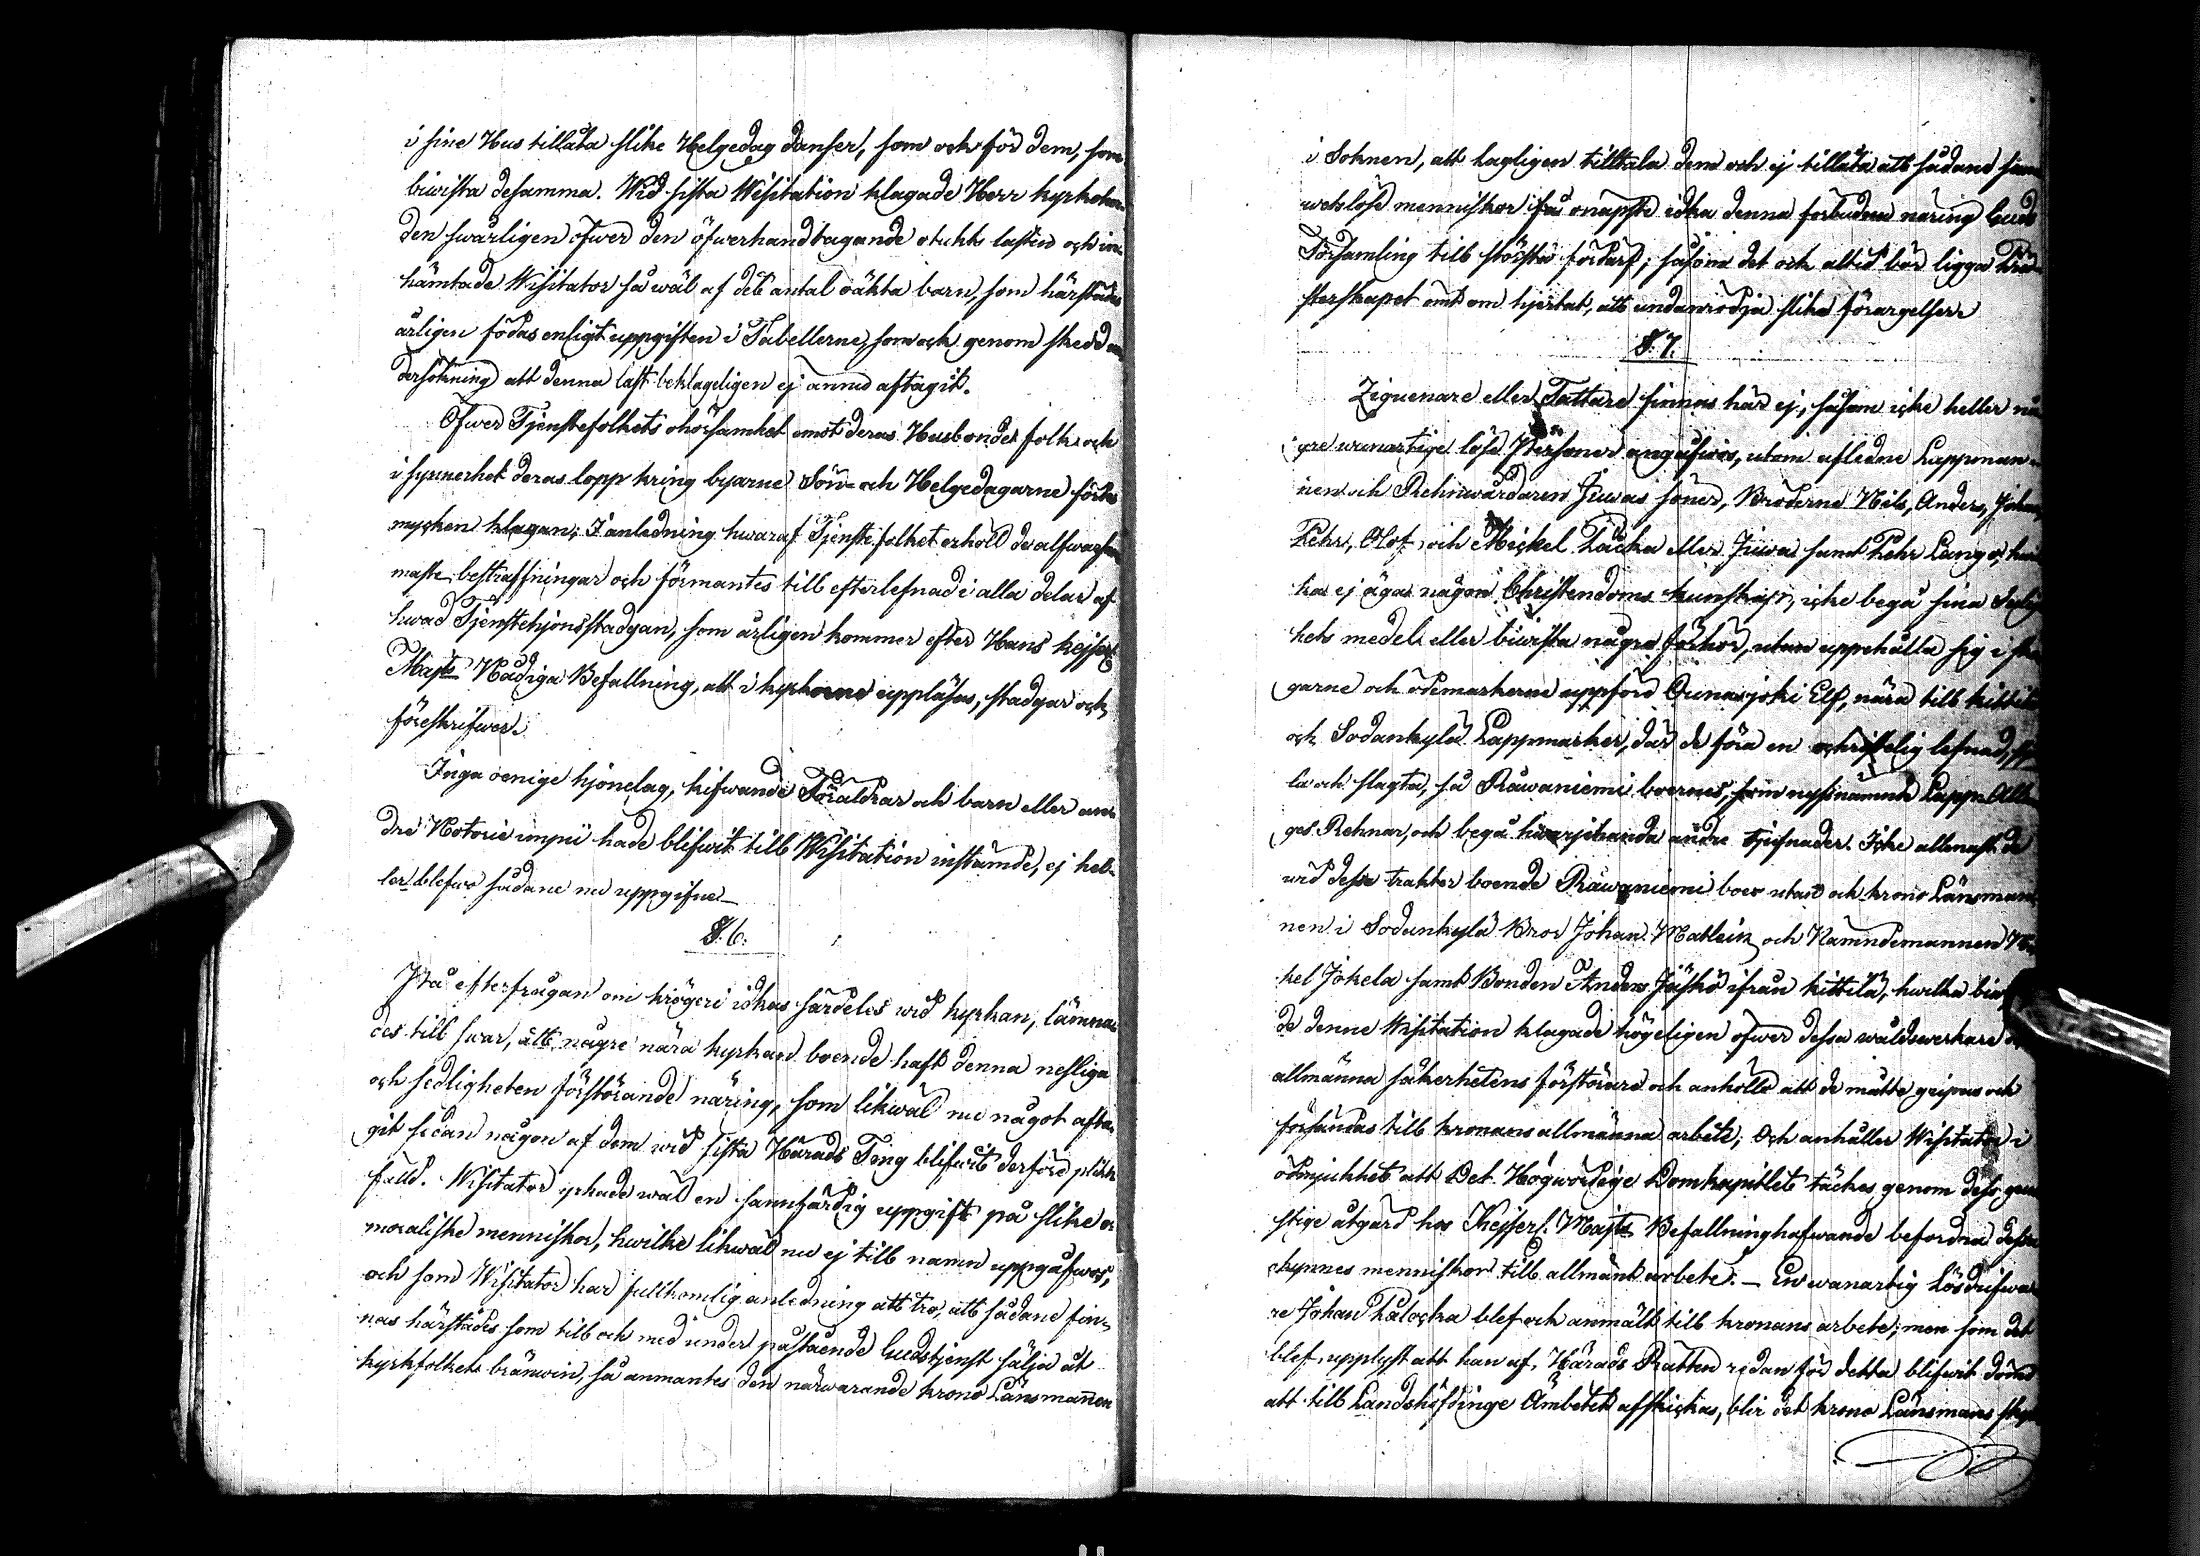 i sine Hus tillåta slike Helgedag danser, som ock för dem, som
biwista desamma. Wid sista Wisitation klagade Herr Kyrkoher-
den swårligen öfwer den öfwerhandtagande otukts lasten och in-
hämtade Wisitator så wäl af det antal oäkta barn, som härstädes
årligen födas enligt uppgiften i Tabellerne, som ock genom skedd un-
dersökning att denna last beklageligen ej ännu aftagit.
Öfwer Tjenstefolkets ohörsamhet emot deras Husbonde folk och
i synnerhet deras lopp kring byarne Sön- och Helgedagarne fördes
mycken klagan; I anledning hwaraf Tjenstefolket erhöll de alfwarsam-
maste bestraffningar och förmantes till efterlefnad i alla delar af
hwad Tjenstehjonsstadgan, som årligen kommer efter Hans Kejserl.
Majts Nådiga Befallning, att i kyrkorne uppläsas, stadgar och
föreskrifwer.
Inga oenige hjonelag, kifwande Föräldrar och barn eller an-
dre Notorie impii hade blifwit till Wisitation instämde, ej hel-
ler blefwo sådane nu uppgifne.
§. 6.
På efterfrågan om krögeri idkas särdeles wid kyrkan, lämna-
des till swar, att någre nära kyrkan boende haft denna nesliga
och sedligheten förstörande näring, som likwäl nu något afta-
git sedan någon af dem wid sista Härads Ting blifwit derföre plikt-
fälld. Wisitator yrkade wäl en sannfärdig uppgift på slike o-
moraliske menniskor, hwilke likwäl nu ej till namn uppgåfwos,
och som Wisitator har fullkomlig anledning att tro, att sådane fin-
nas härstädes som till och med under påstående Gudstjenst sälja åt
kyrkfolket bränwin, så anmantes den närwarande krono Länsmannen
i Soknen, att lagligen tilltala dem och ej tillåta att sådane sam-
wetslöse menniskor få onäpste idka denna förbudna näring Guds
Församling till största fördärf; såsom det och altid bör ligga Prä-
sterskapet ömt om hjertat, att undanrödja slika förargelser.
§. 7.
Ziguenare eller Tattare finnas här ej, såsom icke heller nå-
gre wanartige löse Personer angåfwos, utom afledne Lappman-
nen och Rehnwårdaren Juwas söner, Bröderne Nils, Anders, Johan,
Pehr, Olof och Mickel Täcka eller Juwa samt Pehr Lang
ka ej äga någon Christendoms kunskap, icke begå sina Salig-
hets medel eller biwista någre förhör, utan uppehålla sig i sko-
garne och ödemarkerne uppföre Ounasjoki Elf, nära till Kittilä
och Sodankylä Lappmarker, där de föra en ochristelig lefnad,
la och slagta, så Råwaniemi boernes, som nyssnämnde Lapp
ges Rehnar, och begå hwarjehanda andre tjufnader. Icke allenast de
wid dessa trakter boende Råwaniemi boer utan och krono Länsman-
nen i Sodankylä Bror Johan Matlein och Nämndemannen
kel Jokela samt Bonden Anders Jäskö ifrån Kittilä, hwilka biwista-
de denne Wisitation klagade högeligen öfwer dessa wåldswerkare
allmänna säkerhetens förstörare och anhöllo att de måtte gripas och
försändas till kronans allmänna arbete; Och anhåller Wisitator i
ödmjukhet att Det Högwördige Domkapitlet täckes genom dess gun-
stige åtgärd hos Kejserl. Majts Befallningshafwande befordra dessa
okynnes menniskor till allmänt arbete. — En wanartig Lösdrifwa-
re Johan Palocka blef och anmält till kronans arbete; men som det
blef upplyst att han af Härads Rätten redan för detta blifwit dömd
att till Landshöfdinge Ämbetet afskickas, blir det krono Länsmans